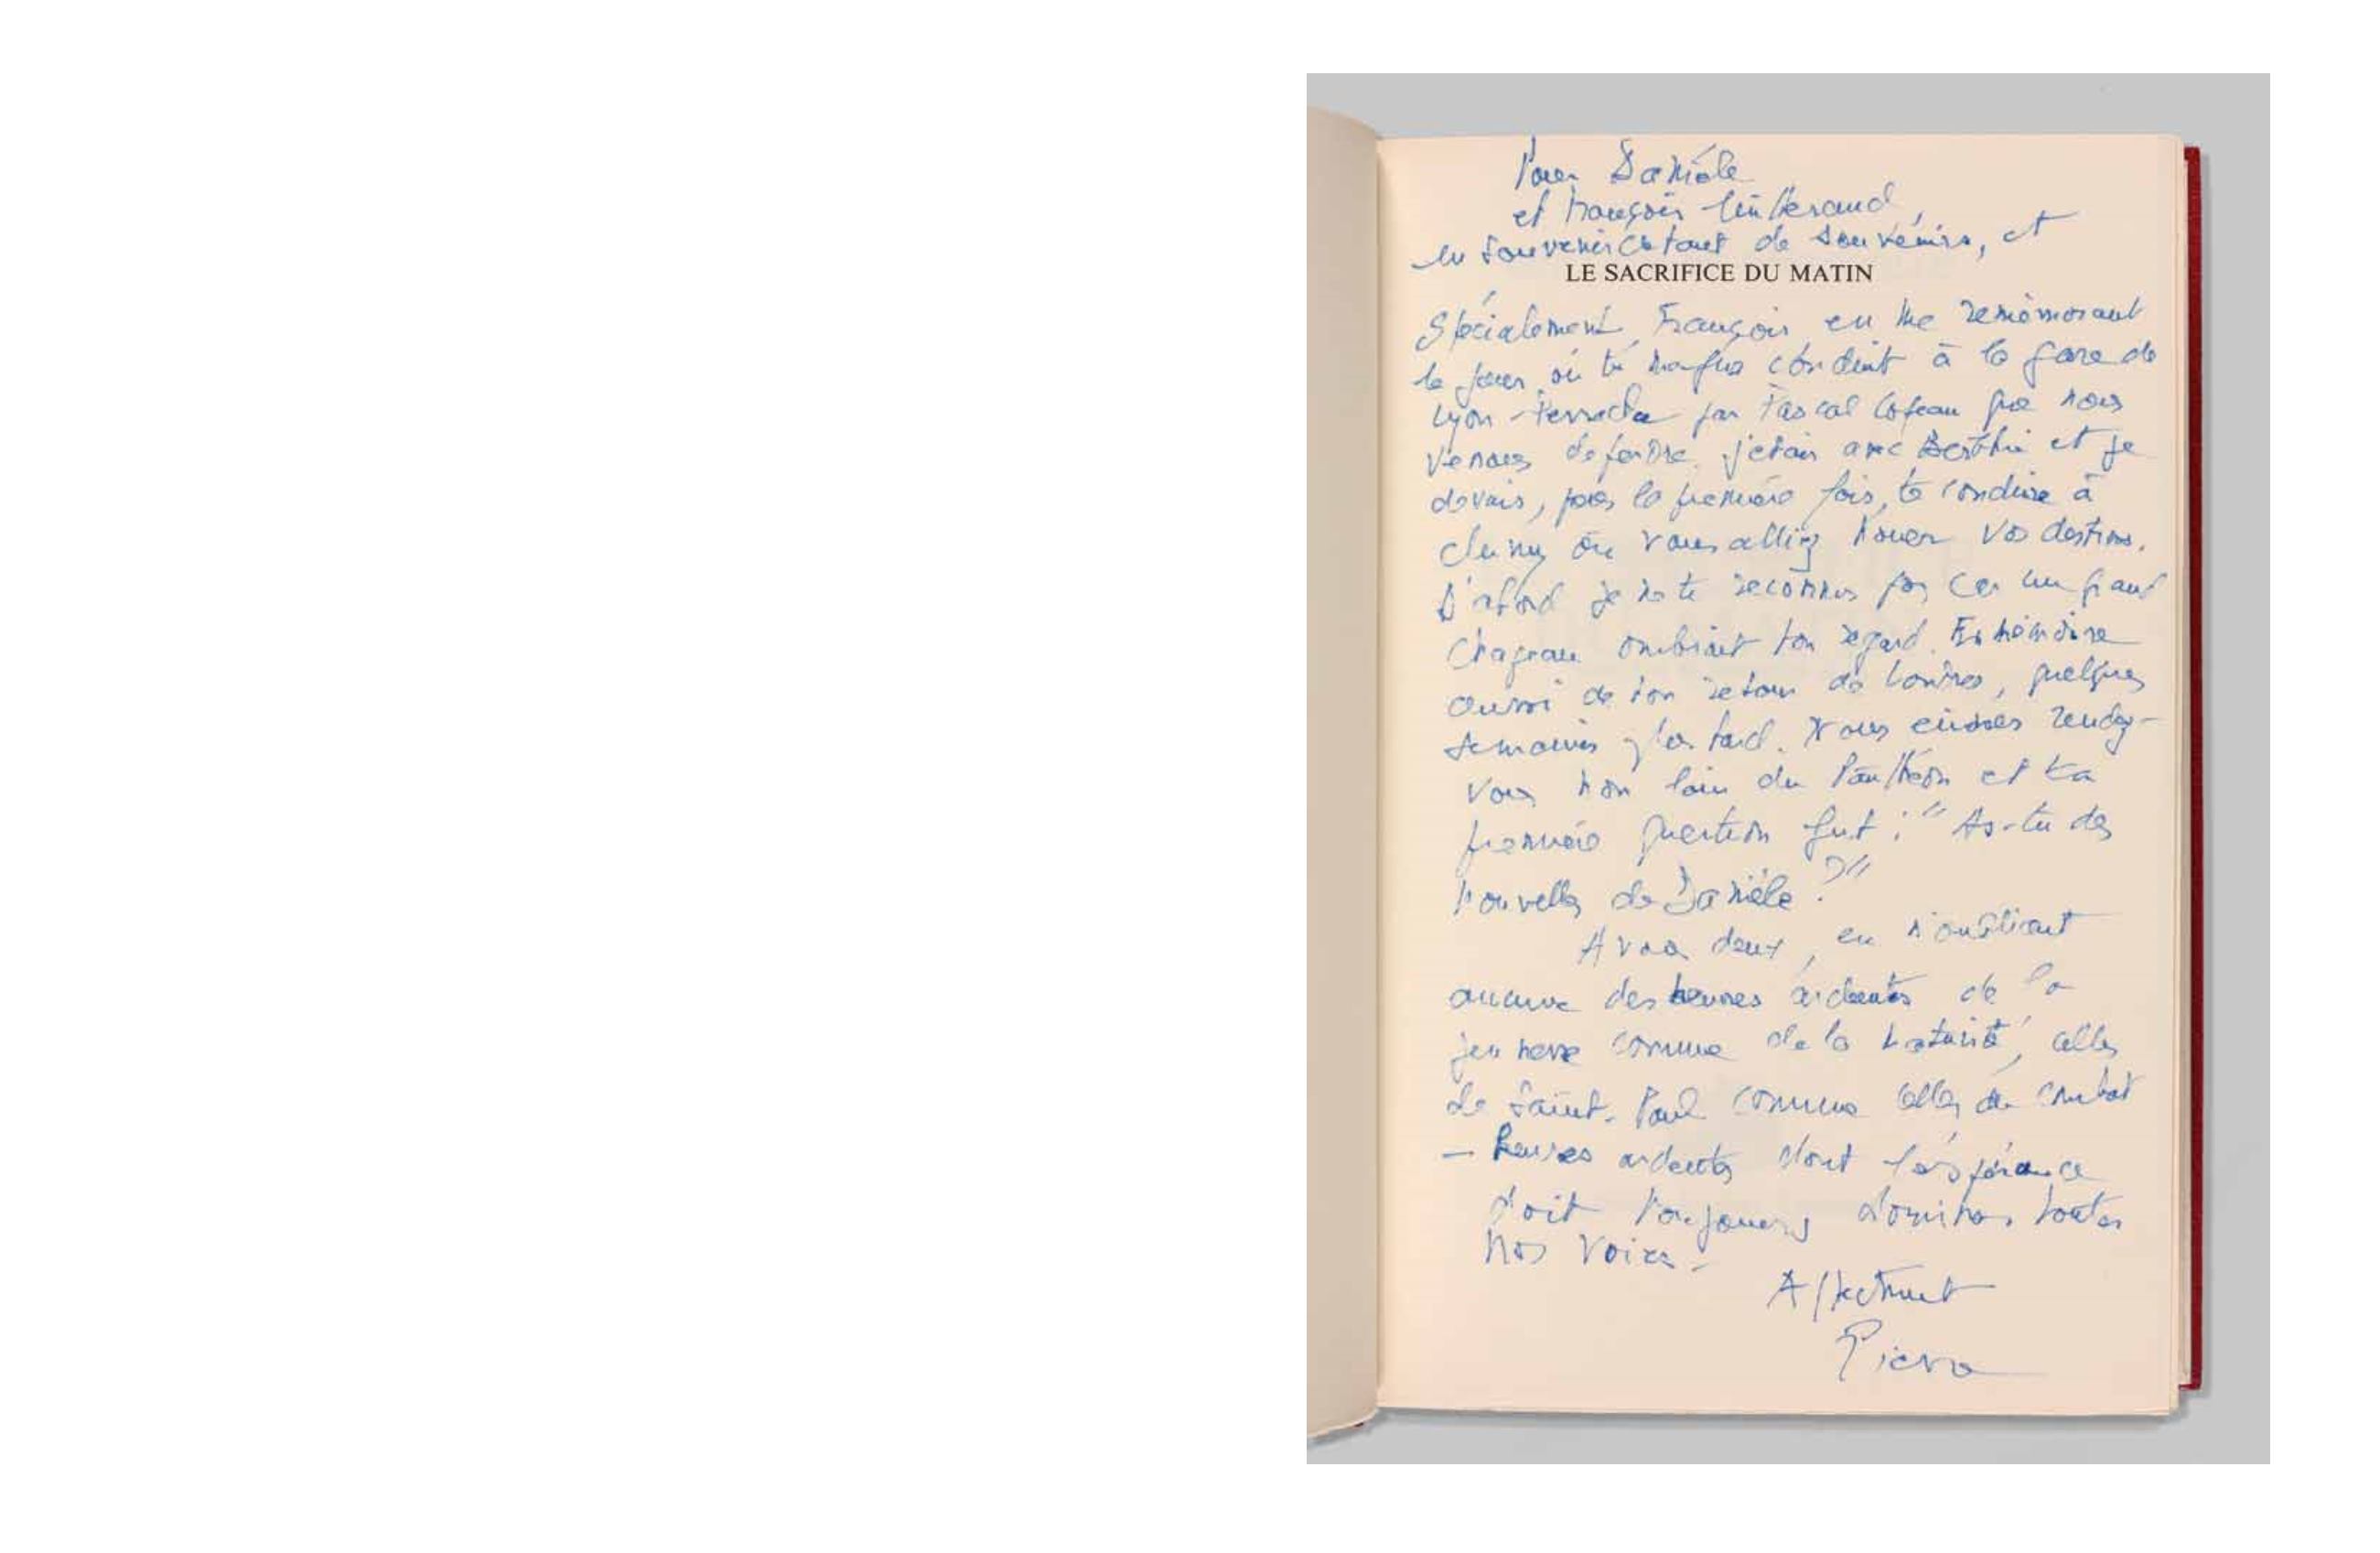 Pour Danièle
et François Mitterrand,
en souvenir de tant de souvenirs, et
LE SACRIFICE DU MATIN
Spécialement, François en me remémorant
le jour où tu conduit à la gare de
Lyon-Perrache par Pascal Copeau que nous
venons de perdre. j'étais avec et je
devais, pour la première fois, te conduire à
Cluny où vous alliez nouer vos destins.
D'abord je ne te reconnus pas car un grand
chapeau ombrait ton regard. En mémoire
aussi de ton retour de Londres, quelques
semaines plus tard. Nous eûmes rendez-
vous non loin du Panthéon et ta
première question fut : "As-tu des
nouvelles de Danièle ?"
A vous deux, en n'oubliant
aucune des heures ardentes de la
jeunesse comme de la maturité, celles
de Saint-Paul comme celles du combat
— heures ardentes dont l'espérance
doit toujours dominer toutes
nos voix.
Affectnt
Pierre